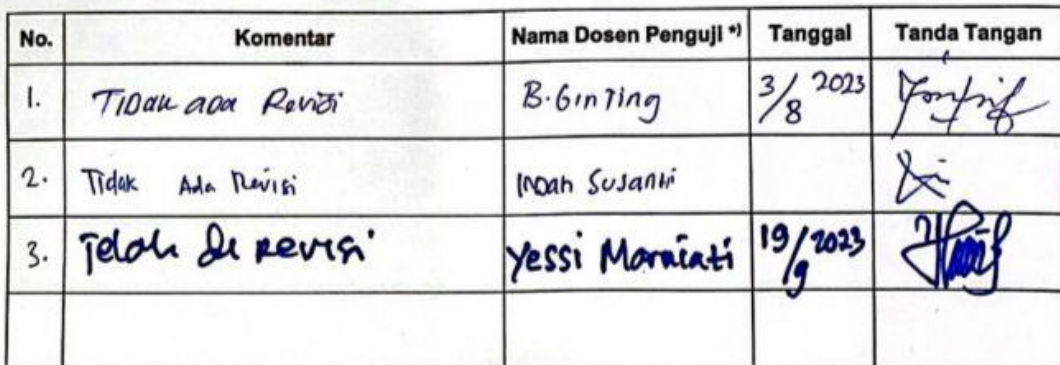 No. Komentar Nama Dosen Penguji *) Tanggal Tanda Tangan
1. Tidak ada Revisi B. Ginting 3/8 2023
2. Tidak Ada Revisi Indah Susanti
3. Telah di Revisi Yessi Marniati 19/9 2023